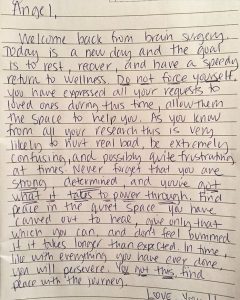 Angel,
Welcome back from brain surgery.
Today is a new day and the goal
is to rest, recover, and have a speedy
return to wellness. Do not force yourself,
you have expressed all your requests to
loved ones during this time, allow them
the space to help you. As you know
from all your research this is very
likely to hurt real bad, be extremely
confusing, and possibly quite frustrating
at times. Never forget that you are
strong, determined, and you've got
what it takes to power through. Find
peace in the quiet space you have
carved out to heal, give only that
which you can, and don't feel bummed
if it takes longer than expected. In time,
like with everything you have ever done
you will persevere. You got this, find
peace with the journey.
Love You!!